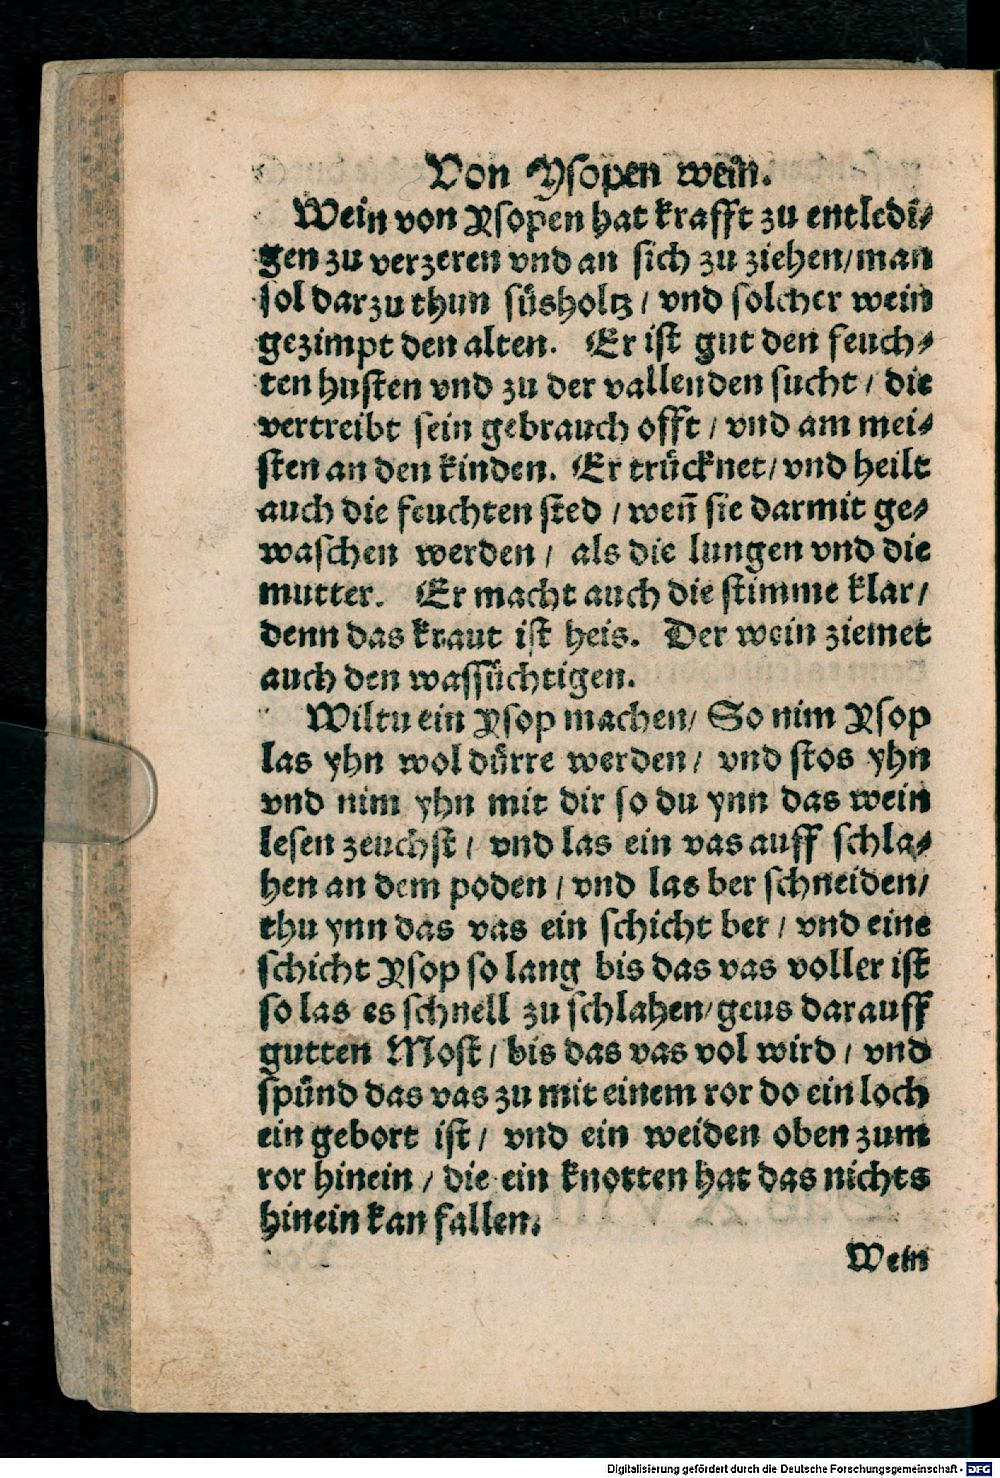 Von Ysopen wein.
Wein von Ysopen hat krafft zu entledi⸗
gen zu verzeren vnd an sich zu ziehen/man
sol darzu thun süsholtz / vnd solcher wein
gezimpt den alten. Er ist gut den feuch⸗
ten husten vnd zu der vallenden sucht / die
vertreibt sein gebrauch offt / vnd am mei⸗
sten an den kinden. Er trücknet/ vnd heilt
auch die feuchten sted / weñ sie darmit ge⸗
waschen werden / als die lungen vnd die
mutter. Er macht auch die stimme klar/
denn das kraut ist heis. Der wein ziemet
auch den wassüchtigen.
Wiltu ein Ysop machen/ So nim Ysop
las yhn wol dürre werden / vnd stos yhn
vnd nim yhn mit dir so du ynn das wein
lesen zeuchst / vnd las ein vas auff schla⸗
hen an dem poden / vnd las ber schneiden/
thu ynn das vas ein schicht ber / vnd eine
schicht Ysop so lang bis das vas voller ist
so las es schnell zu schlahen/geus darauff
gutten Most / bis das vas vol wird / vnd
spünd das vas zu mit einem ror do ein loch
ein gebort ist / vnd ein weiden oben zum
ror hinein / die ein knotten hat das nichts
hinein kan fallen.
Wein
Digitalisierung gefördert durch die Deutsche Forschungsgemeinschaft - DFG